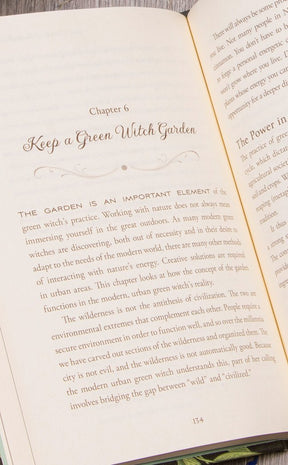 Chapter 6
Keep a Green Witch Garden
THE GARDEN IS AN IMPORTANT ELEMENT of the
green witch's practice. Working with nature does not always mean
immersing yourself in the great outdoors. As many modern green
witches are discovering, both out of necessity and in their desire to
adapt to the needs of the modern world, there are many other methods
of interacting with nature's energy. Creative solutions are required
in urban areas. This chapter looks at how the concept of the garden
functions in the modern, urban green witch's reality.
The wilderness is not the antithesis of civilization. The two are
environmental extremes that complement each other. People require a
secure environment in order to function well, and so over the millennia
we have carved out sections of the wilderness and organized them. The
city is not evil, and the wilderness is not automatically good. Because
the modern urban green witch understands this, part of her calling
involves bridging the gap between "wild" and "civilized."
134
There will always be some
you live. Not many people in
cinnamon. You don't have to
to forge a personal energetic
won't grow where you live.
plants whose energy you can
opportunity for a deeper
The Power in
The practice of green
cycle, which dictates
agricultural society
soil and crops.
reaping (
equation.
It is
a strong